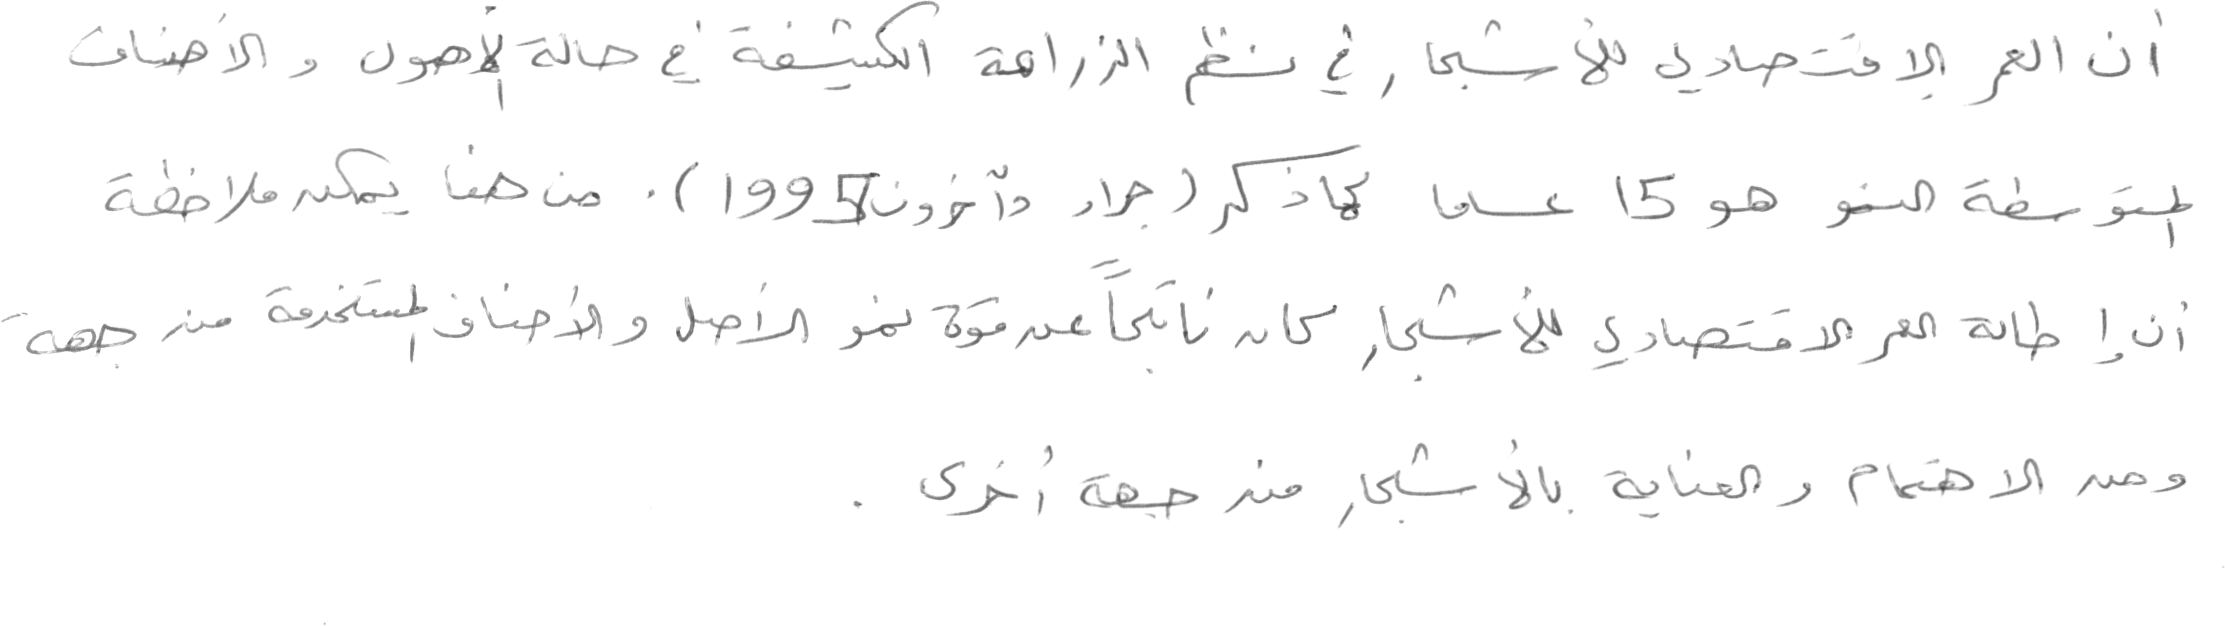 أن العمر الاقتصادي للأشجار في نظم الزراعة الكثيفة في حالة الأصول والأصناف
المتوسطة النمو هو 15 عاما كما ذكر (جرار وآخرون 1995). من هنا يمكن ملاحظة
أن إطالة العمر الاقتصادي للأشجار كان ناتجاً عن قوة نمو الأصل والأصناف المستخدمة من جهة
ومن الاهتمام والعناية بالأشجار من جهة أخرى .